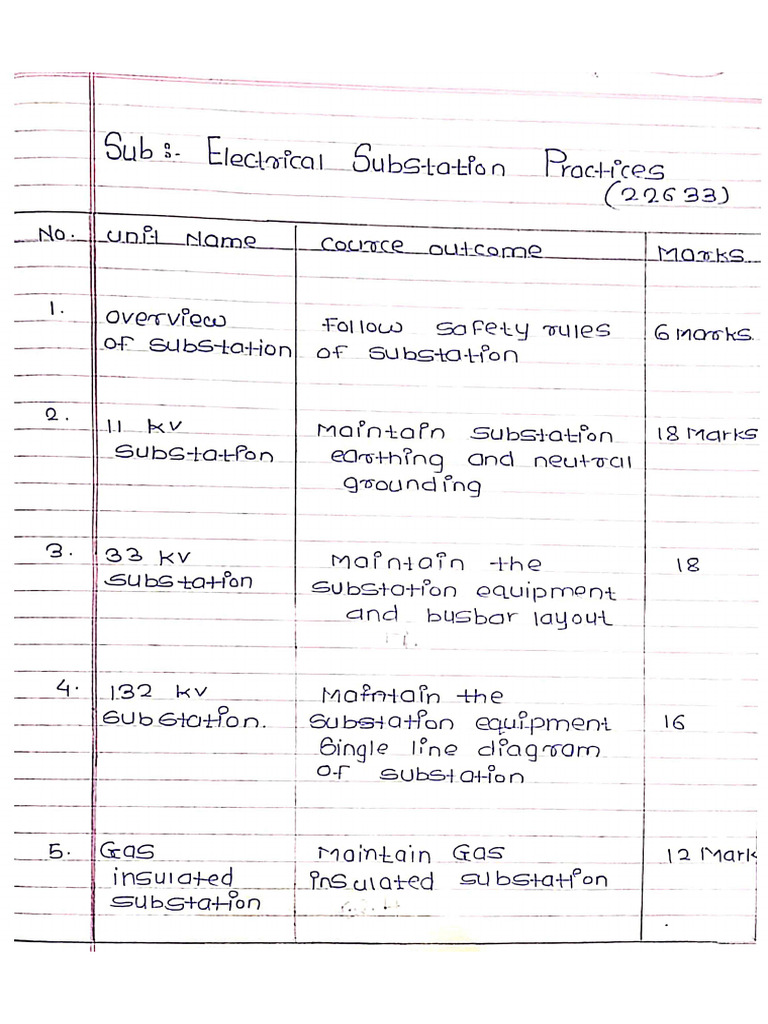 Sub:- Electrical Substation Practices
(22633)
No. Unit Name Cource outcome Marks
1. overview Follow safety rules 6 Marks
of substation of substation
2. 11 kv Maintain substation 18 Marks
substation earthing and neutral
grounding
3. 33 kv Maintain the 18
substation substation equipment
and busbar layout
4. 132 kv Maintain the
substation. substation equipment 16
Single line diagram
of substation
5. Gas Maintain Gas 12 Mark
insulated insulated substation
substation